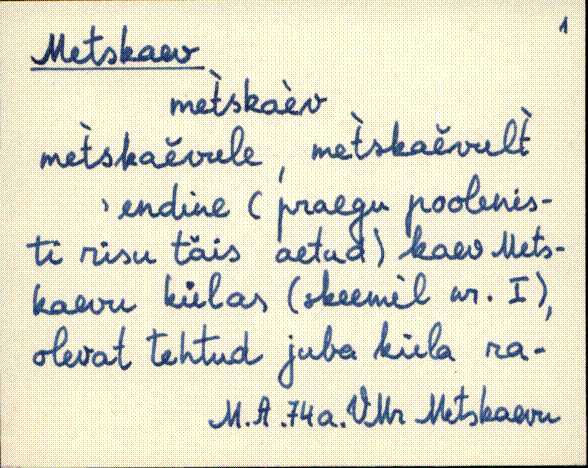 1
Metskaev
mètskaèv
mètskaĕvule, mètskaĕvult̀
› endine (praegu poolenis-
ti risu täis aetud) kaev Mets-
kaevu külas (skeemil nr. I),
olevat tehtud juba küla ra-
M.A. 74a. VMr Metskaevu